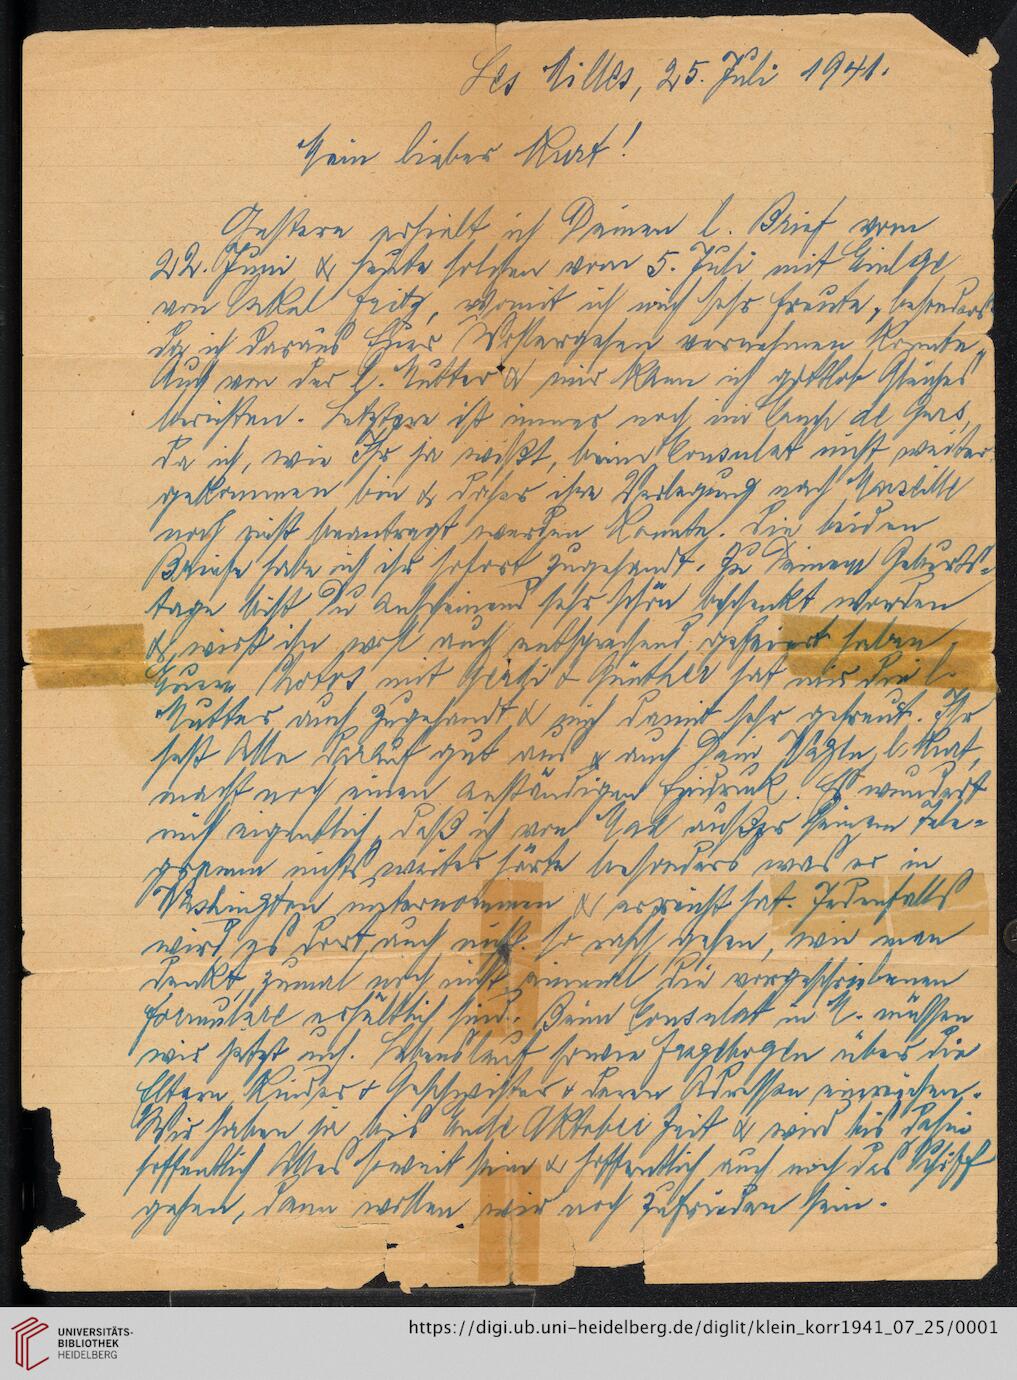 Les Milles, 25. Juli 1941.
Mein lieber Kurt!
Gestern erhielt ich Deinen l. Brief vom
22. Juni & heute solchen vom 5. Juli mit Einlage
von Onkel Fritz, womit ich mich sehr freute, besonders
da ich daraus Euer Wohlergehen vernehmen konnte.
Auch von der l. Mutter & mir kann ich gottlob Gleiches
berichten. Letztere ist immer noch im Camp de Gurs,
da ich, wie Ihr ja wißt, beim Consulat nicht weiter
gekommen bin & daher ihre Verlegung nach Marseille
noch nicht beantragt werden konnte. Die beiden
Briefe habe ich ihr sofort zugesandt. Zu Deinem Geburts-
tage bist Du anscheinend sehr schön beschenkt worden
& wirst ihn wohl auch entsprechend gefeiert haben.
Euere Photos mit & Günther hat mir die l.
Mutter auch zugesandt & mich damit sehr gefreut. Ihr
seht Alle darauf gut aus & auch Dein Wägle, l. Kurt,
macht noch einen anständigen Eindruck. Es wundert
mich eigentlich, daß ich von Max außer seinem Tele-
gramm nichts weiter hörte besonders was er in
Washington unternommen & erreicht hat. Jedenfalls
wird es dort auch nicht so rasch gehen, wie man
denkt, zumal noch nicht einmal die vorgeschriebenen
Formulare erhältlich sind. Beim Consulat in M. müssen
wir jetzt uns. Lebenslauf sowie Fragebogen über die
Eltern, Kinder & Geschwister & deren Adressen einreichen.
Wir haben ja bis Ende Oktober Zeit & wird bis dahin
hoffentlich Alles soweit sein & hoffentlich auch noch das Schiff
gehen, dann wollen wir noch zufrieden sein.
UNIVERSITÄTS-
BIBLIOTHEK
HEIDELBERG
https://digi.ub.uni-heidelberg.de/diglit/klein_korr1941_07_25/0001